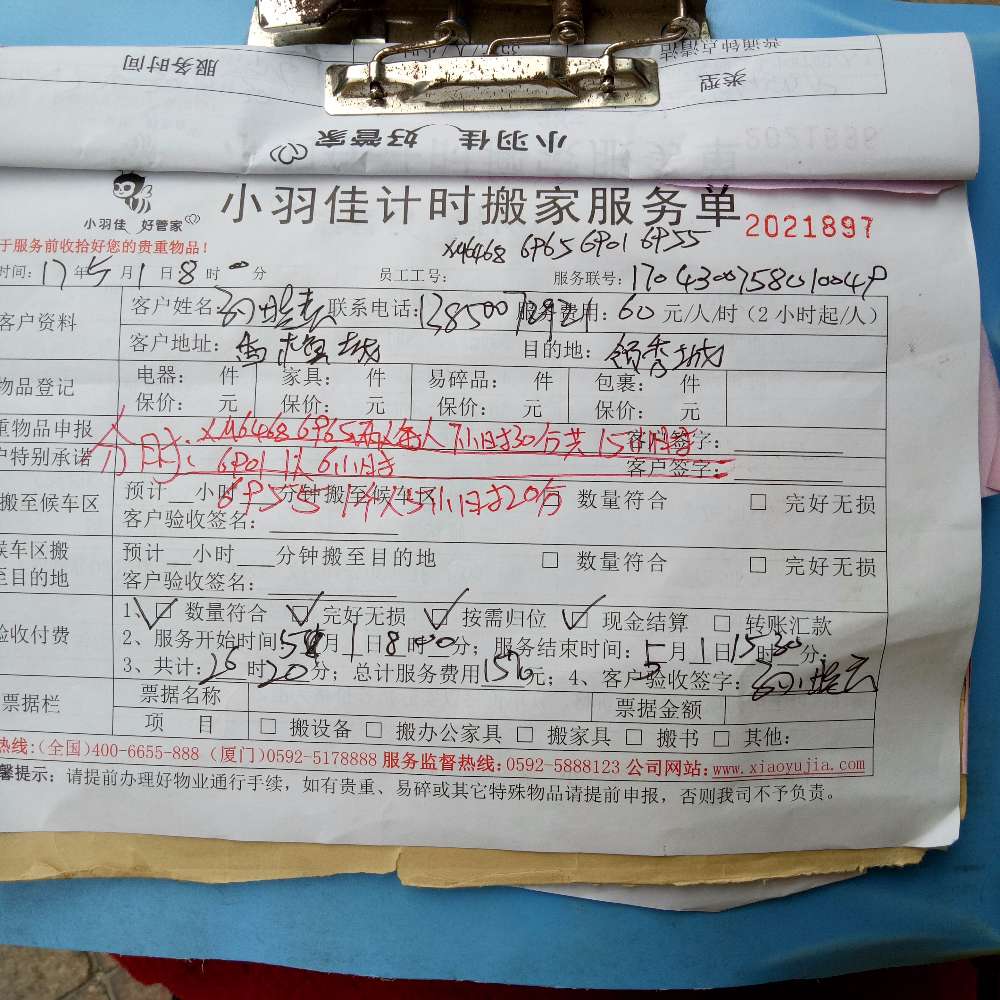 常通钟点清洁
类型
服务时间
小羽佳 好管家
小羽佳 好管家
小羽佳计时搬家服务单
2021897
XM6468 6P65 6P01 6P55
于服务前收拾好您的贵重物品!
时间:17年5月1日8时00分 员工工号: 服务联号:
客户资料
客户姓名: 联系电话: 服务费用:60元/人/时(2小时起/人)
客户地址: 目的地:领秀城
物品登记
电器: 件 家具: 件 易碎品: 件 包裹: 件
保价: 元 保价: 元 保价: 元 保价: 元
重物品申报 客户签字:
户特别承诺 客户签字:
XM6468 6P65 7小时30分共15小时
6P01 1人6小时
6P55 1人5小时20分
搬至候车区
预计__小时__分钟搬至候车区 □ 数量符合 □ 完好无损
客户验收签名:
候车区搬
至目的地
预计__小时___分钟搬至目的地 □ 数量符合 □ 完好无损
客户验收签名:
验收付费
1、☑ 数量符合 ☑ 完好无损 ☑ 按需归位 ☑ 现金结算 □ 转账汇款
2、服务开始时间5月1日8时00分;服务结束时间:5月1日15时30分;
3、共计:26时20分;总计服务费用1570元;4、客户验收签字:
票据栏
票据名称 票据金额
项 目 □ 搬设备 □ 搬办公家具 □ 搬家具 □ 搬书 □ 其他:
热线:(全国)400-6655-888 (厦门)0592-5178888 服务监督热线:0592-5888123 公司网站:www.xiaoyujia.com
馨提示:请提前办理好物业通行手续,如有贵重、易碎或其它特殊物品请提前申报,否则我司不予负责。